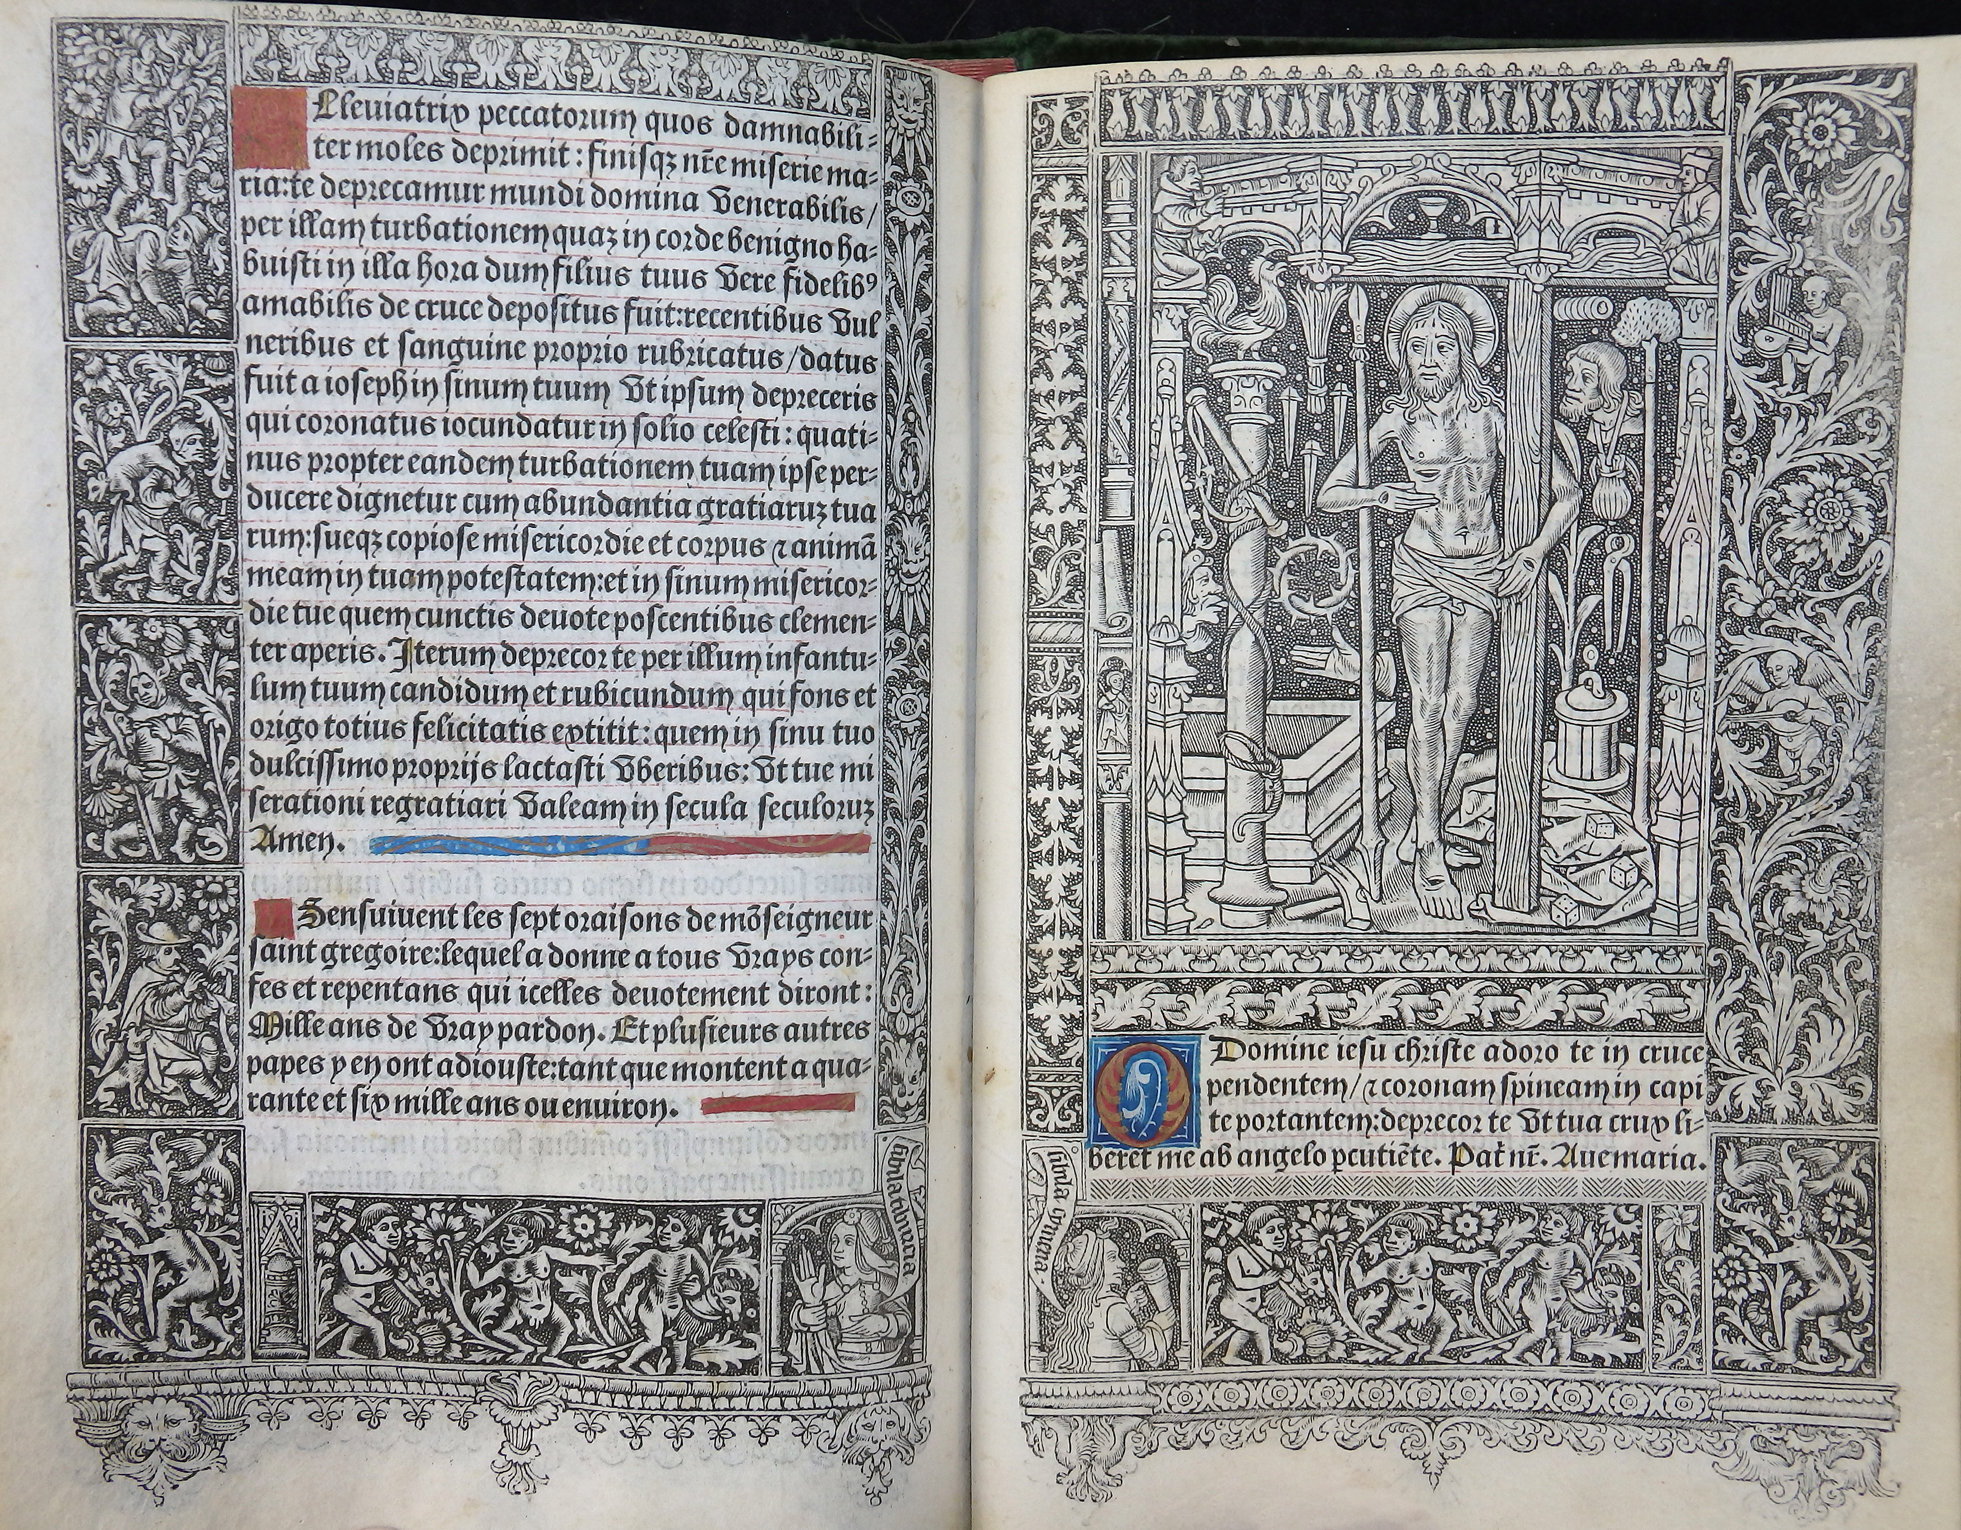 Lleuiatrix peccatorum quos damnabili-
ter moles deprimit: finisqꝫ nr̄e miserie ma-
ria: te deprecamur mundi domina venerabilis/
per illam turbationem quaꝫ in corde benigno ha-
buisti in illa hora dum filius tuus vere fidelibꝰ
amabilis de cruce depositus fuit: recentibus vul
neribus et sanguine proprio rubricatus/datus
fuit a ioseph in sinum tuum vt ipsum depreceris
qui coronatus iocundatur in solio celesti: quati-
nus propter eandem turbationem tuam ipse per-
ducere dignetur cum abundantia gratiaruꝫ tua
rum: sueqꝫ copiose misericordie et corpus ⁊ animā
meam in tuam potestatem: et in sinum misericor-
die tue quem cunctis deuote poscentibus clemen-
ter aperis. Iterum deprecor te per illum infantu-
lum tuum candidum et rubicundum qui fons et
origo totius felicitatis extitit: quem in sinu tuo
dulcissimo proprijs lactasti vberibus: vt tue mi
serationi regratiari valeam in secula seculoruꝫ
Amen.
Sensuiuent les sept oraisons de mōseigneur
saint gregoire: lequel a donne a tous vrays con-
fes et repentans qui icelles deuotement diront:
Mille ans de vray pardon. Et plusieurs autres
papes y en ont adiouste: tant que montent a qua-
rante et six mille ans ou enuiron.
O Domine iesu christe adoro te in cruce
pendentem/⁊ coronam spineam in capi
te portantem: deprecor te vt tua crux li-
beret me ab angelo pcutiēte. Pat̄ nr̄. Aue maria.